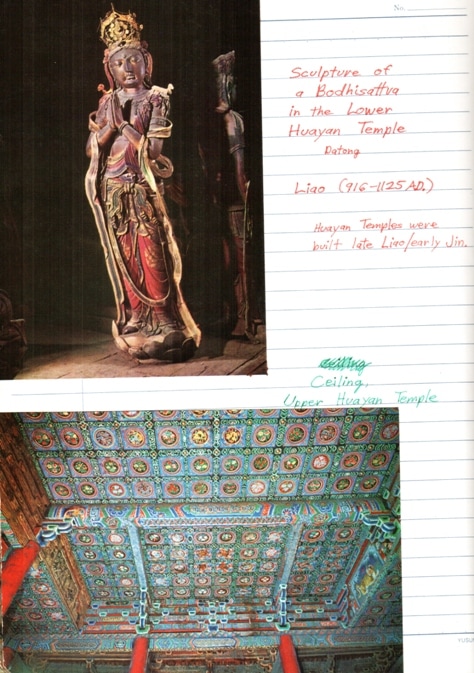 No.
Sculpture of
a Bodhisattva
in the Lower
Huayan Temple
Datong
Liao (916-1125 AD.)
Huayan Temples were
built late Liao/early Jin.
Ceiling,
Upper Huayan Temple